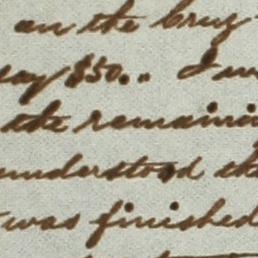 on the brig
say $50.. I w
the remainin
understood the
was finished